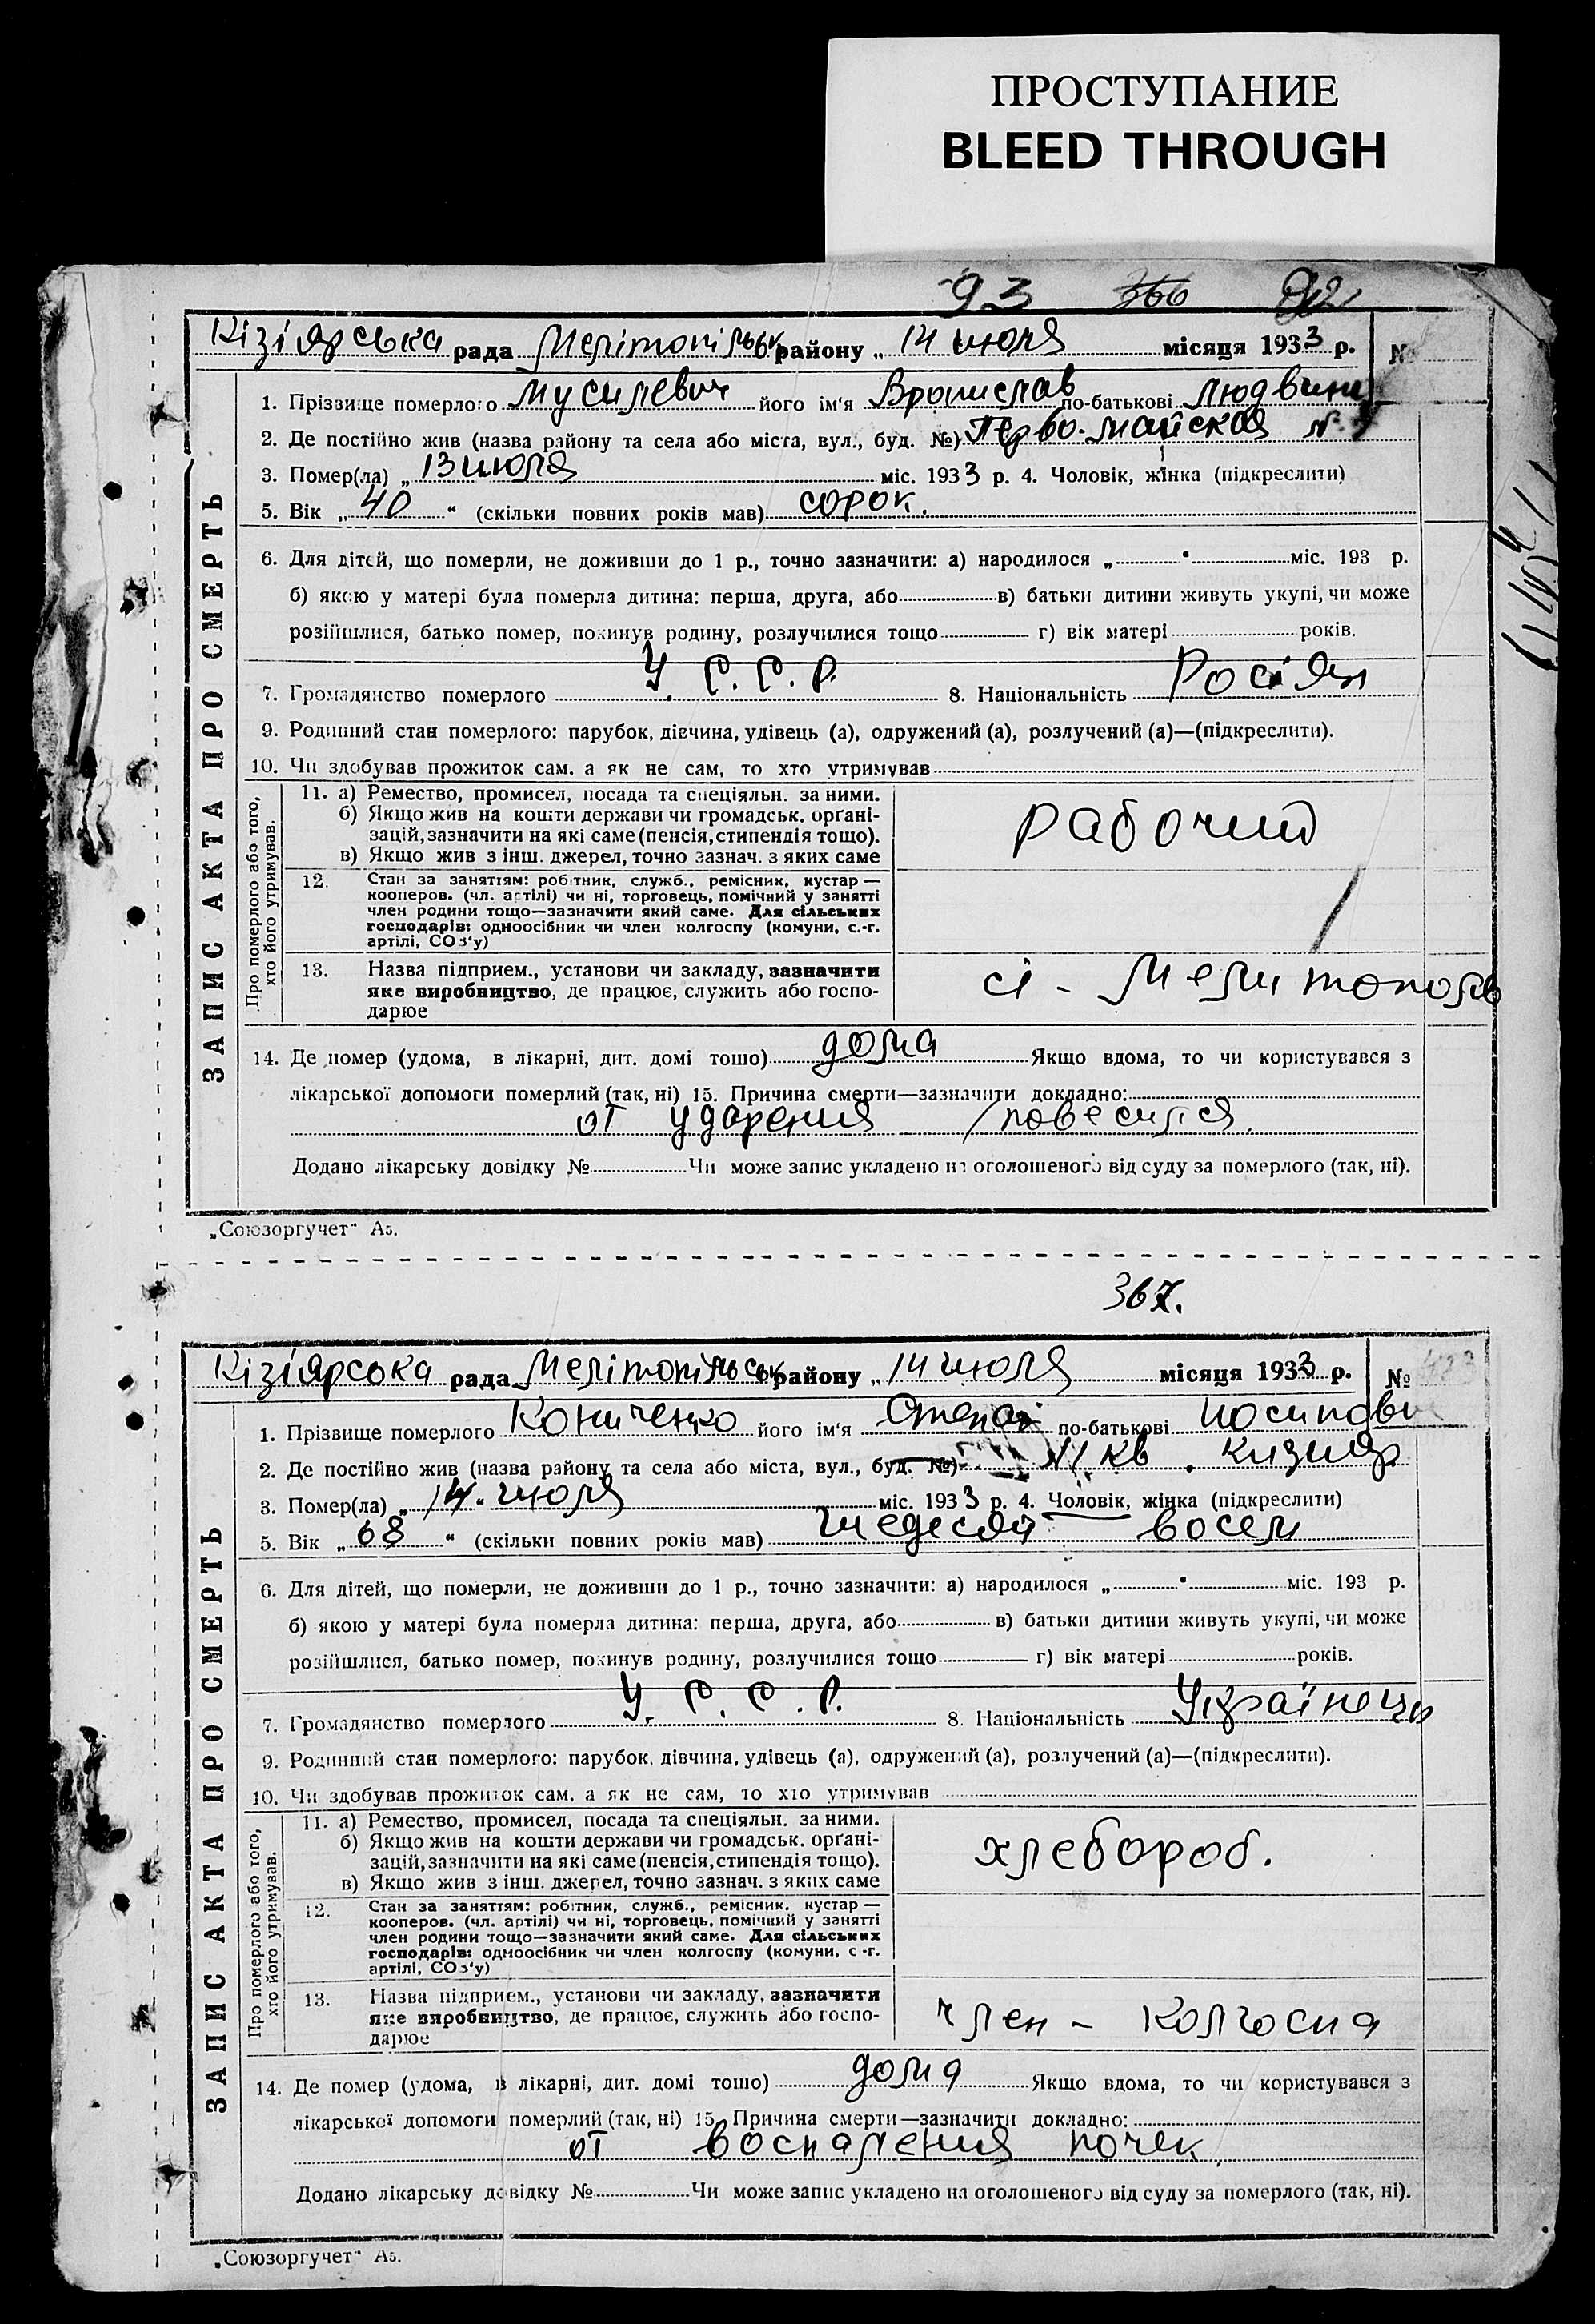 ПРОСТУПАНИЕ
BLEED THROUGH
93 366 92
Кізіярська рада Мелітопільськ району „ 14 июля місяця 1933 р. №
1. Прізвище померлого Мусилевич його ім'я Вронислав по-батькові Людвиг
2. Де постійно жив (назва району та села або міста, вул., буд. №) Перво-майская №
3. Помер(ла) „ 13 июля міс. 1933 р. 4. Чоловік, жінка (підкреслити)
5. Вік „ 40 “ (скільки повних років мав) сорок.
6. Для дітей, що померли, не доживши до 1 р., точно зазначити: а) народилося „ “ міс. 193 р.
б) якою у матері була померла дитина: перша, друга, або в) батьки дитини живуть укупі, чи може
розійшлися, батько помер, покинув родину, розлучилися тощо г) вік матері років.
7. Громадянство померлого У. С. С. Р. 8. Національність Росіян
9. Родинний стан померлого: парубок, дівчина, удівець (а), одружений (а), розлучений (а)—(підкреслити).
10. Чи здобував прожиток сам, а як не сам, то хто утримував
ЗАПИС АКТА ПРО СМЕРТЬ
Про померлого або того, хто його утримував.
11. а) Ремество, промисел, посада та спеціяльн. за ними.
б) Якщо жив на кошти держави чи громадськ. орґані-
зацій, зазначити на які саме (пенсія, стипендія тощо).
в) Якщо жив з інш. джерел, точно зазнач. з яких саме
рабочий
12. Стан за заняттям: робітник, служб., ремісник, кустар —
кооперов. (чл. артілі) чи ні, торговець, помічний у занятті
член родини тощо—зазначити який саме. Для сільських
господарів: одноосібник чи член колгоспу (комуни, с.-г.
артілі, СОз'у)
13. Назва підприєм., установи чи закладу, зазначити
яке виробництво, де працює, служить або госпо-
дарює
сі - Мелитополь
14. Де помер (удома, в лікарні, дит. домі тощо) дома Якщо вдома, то чи користувався з
лікарської допомоги померлий (так, ні) 15. Причина смерти—зазначити докладно:
от ударения /повесился.
Додано лікарську довідку № Чи може запис укладено на оголошеного від суду за померлого (так, ні).
„Союзоргучет“ А5.
367.
Кізіярсока рада Мелітопільськ району „ 14 июля місяця 1933 р. № 423
1. Прізвище померлого Кониченко його ім'я Степан по-батькові Иосипови
2. Де постійно жив (назва району та села або міста, вул., буд. №) 11 кв. Кизияр
3. Помер(ла) „ 14 “ июля міс. 1933 р. 4. Чоловік, жінка (підкреслити)
5. Вік „ 68 “ (скільки повних років мав) шедесят восем
6. Для дітей, що померли, не доживши до 1 р., точно зазначити: а) народилося „ “ міс. 193 р.
б) якою у матері була померла дитина: перша, друга, або в) батьки дитини живуть укупі, чи може
розійшлися, батько помер, покинув родину, розлучилися тощо г) вік матері років.
7. Громадянство померлого У. С. С. Р. 8. Національність Українець
9. Родинний стан померлого: парубок, дівчина, удівець (а), одружений (а), розлучений (а)—(підкреслити).
10. Чи здобував прожиток сам, а як не сам, то хто утримував
ЗАПИС АКТА ПРО СМЕРТЬ
Про померлого або того, хто його утримував.
11. а) Ремество, промисел, посада та спеціяльн. за ними.
б) Якщо жив на кошти держави чи громадськ. орґані-
зацій, зазначити на які саме (пенсія, стипендія тощо).
в) Якщо жив з інш. джерел, точно зазнач. з яких саме
хлебороб.
12. Стан за заняттям: робітник, служб., ремісник, кустар —
кооперов. (чл. артілі) чи ні, торговець, помічний у занятті
член родини тощо—зазначити який саме. Для сільських
господарів: одноосібник чи член колгоспу (комуни, с-г.
артілі, СОз'у)
13. Назва підприєм., установи чи закладу, зазначити
яке виробництво, де працює, служить або госпо-
дарює
член - колгоспа
14. Де помер (удома, в лікарні, дит. домі тощо) дома Якщо вдома, то чи користувався з
лікарської допомоги померлий (так, ні) 15. Причина смерти—зазначити докладно:
от воспаления почек
Додано лікарську довідку № Чи може запис укладено на оголошеного від суду за померлого (так, ні).
„Союзоргучет“ А5.